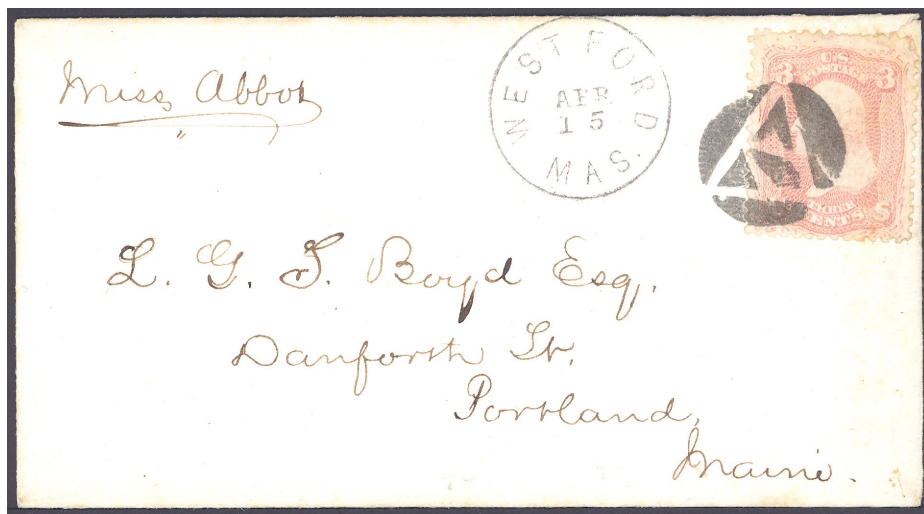 Miss Abbot
WESTFORD
APR
15
MAS.
3 U.S. 3
POSTAGE
THREE
CENTS
L. G. S. Boyd Esq.
Danforth St.
Portland,
Maine.